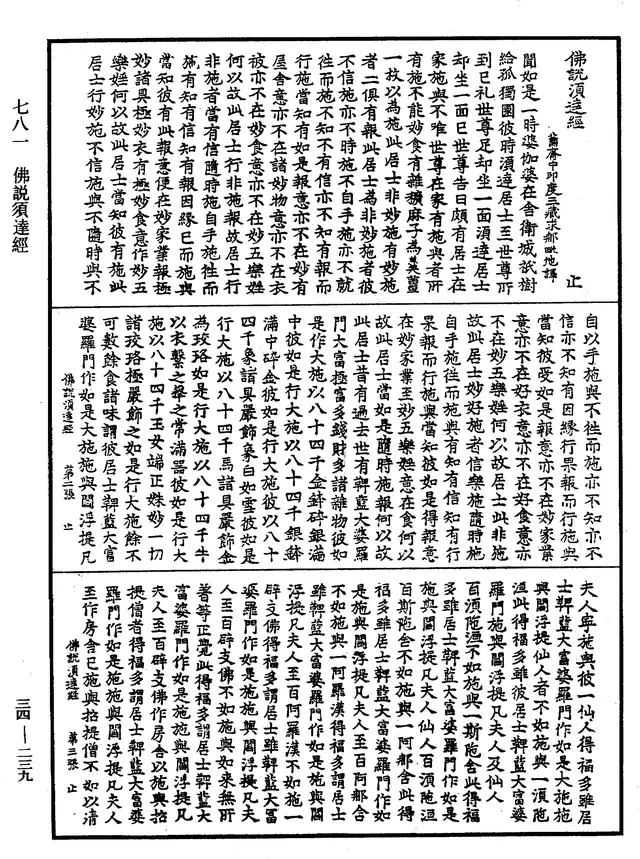 佛說須達經
蕭齊中印度三藏求那毗地譯
止
聞如是一時婆伽婆在舍衛城祇樹
給孤獨園彼時須達居士至世尊所
到已礼世尊足却坐一面須達居士
却坐一面已世尊告曰頗有居士在
家施與不唯世尊在家有施與者所
有施不能妙食有雜穬麻子為羹薑
一枚以為施此居士非妙施有妙施
者二俱有報此居士為非妙施者彼
不信施亦不時施不自手施亦不就
往而施不知不有信亦不知有報而
行施當知有如是報意亦不在妙有
屋舍意亦不在諸妙物意亦不在衣
被亦不在妙食意亦不在妙五樂婬
何以故此居士行非施報故居士行
非施者當有信隨時施自手施往而
施有知有信知有報因緣已而施與
當知彼有此報意便在妙家業報極
妙諸具極妙衣有極妙食意作妙五
樂婬何以故此居士當知彼有施此
居士行妙施不信施與不隨時與不
自以手施與不往而施亦不知亦不
信亦不知有因緣行果報而行施與
當知彼受如是報意亦不在妙家業
意亦不在好衣意亦不在好食意亦
不在妙五樂婬何以故居士此非施
故此居士妙好施者信樂施隨時施
自手施往而施與有知有信知有行
果報而行施與當知彼如是得報意
在妙家業至妙五樂婬意在食何以
故此居士當如是隨時施報何以故
此居士昔有過去世有鞞藍大婆羅
門大富極富多錢財多諸雜物彼如
是作大施以八十四千金鉢碎銀滿
中彼如是行大施以八十四千銀鉢
滿中碎金彼如是行大施彼以八十
四千象諸具嚴飾象白如雪彼如是
行大施以八十四千馬諸具嚴飾金
為珓珞如是行大施以八十四千牛
以衣繫之犖之常滿器彼如是行大
施以八十四千玉女端正姝妙一切
諸珓珞極嚴飾之如是行大施餘不
可數餘食諸味謂彼居士鞞藍大富
婆羅門作如是大施施與閻浮提凡
佛說須達經 第二張 止
夫人寧施與彼一仙人得福多雖居
士鞞藍大富婆羅門作如是大施施
與閻浮提仙人者不如施與一須陁
洹此得福多雖彼居士鞞藍大富婆
羅門施與閻浮提凡夫人及仙人
百須陁洹不如施與一斯陁含此得福
多雖居士鞞藍大富婆羅門作如是
施與閻浮提凡夫人仙人百須陁洹
百斯陁含不如施與一阿那含此得
福多雖居士鞞藍大富婆羅門作如
是施與閻浮提凡夫人至百阿那含
不如施與一阿羅漢得福多謂居士
雖鞞藍大富婆羅門作如是施與閻
浮提凡夫人至百阿羅漢不如施一
辟支佛得福多謂居士鞞藍大富
婆羅門作如是施施與閻浮提凡夫
人至百辟支佛不如施與如來無所
著等正覺此得福多謂居士鞞藍大
富婆羅門作如是施施與閻浮提凡
夫人至百辟支佛作房舍以施與招
提僧者得福多謂居士鞞藍大富婆
羅門作如是施施與閻浮提凡夫人
至作房舍已施與招提僧不如以清
佛說須達經 第三張 止
七八一 佛説須達經
三四—二三九